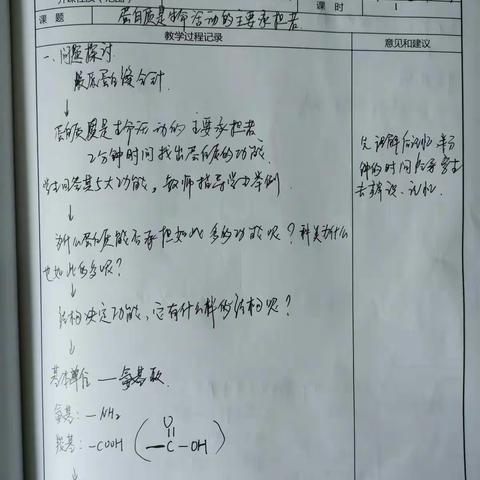 课时
1
课题
蛋白质是生命活动的主要承担者
教学过程记录
意见和建议
一、问题探讨
胶原蛋白缝合针
↓
蛋白质是生命活动的主要承担者
2分钟时间找出蛋白质的功能
学生回答其5大功能，教师指导学生举例
↓
为什么蛋白质能承担如此多的功能呢？种类为什么
也如此多呢？
↓
结构决定功能，它有什么样的结构呢？
↓
基本单位 — 氨基酸
氨基：—NH2
羧基：—COOH ( O
—C—OH )
↓
先讲解后记忆
钟的时间
去辨识、记忆